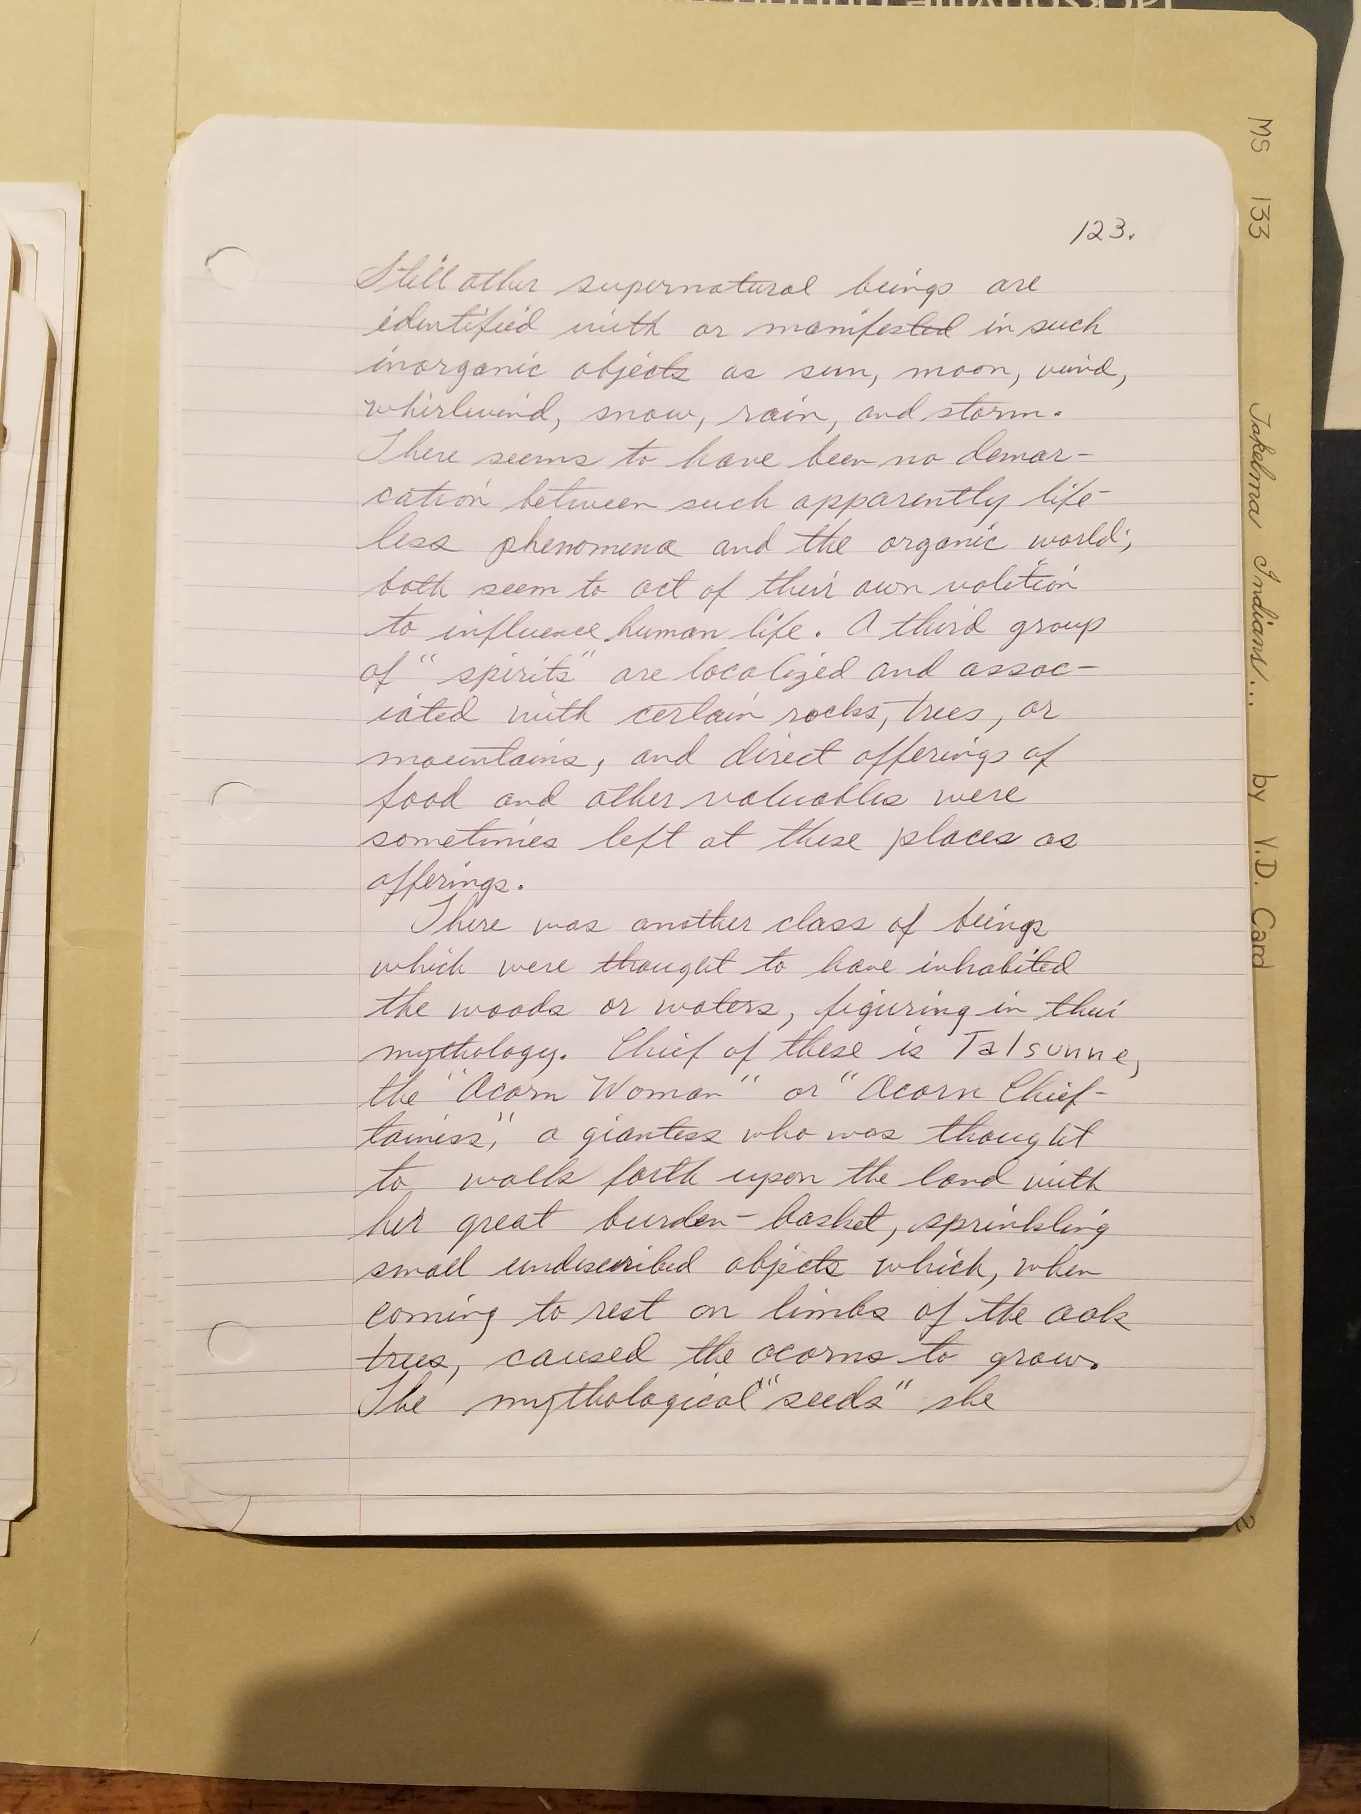 123.
Still other supernatural beings are
identified with or manifested in such
inorganic objects as sun, moon, wind,
whirlwind, snow, rain, and storm.
There seems to have been no demar-
cation between such apparently life-
less phenomena and the organic world;
both seem to act of their own volition
to influence human life. A third group
of "spirits" are localized and assoc-
iated with certain rocks, trees, or
mountains, and direct offerings of
food and other valuables were
sometimes left at these places as
offerings.
There was another class of beings
which were thought to have inhabited
the woods or waters, figuring in their
mythology. Chief of these is Talsunne,
the "Acorn Woman" or "Acorn Chief-
tainess," a giantess who was thought
to walk forth upon the land with
her great burden-basket, sprinkling
small undescribed objects which, when
coming to rest on limbs of the oak
trees, caused the acorns to grow.
The mythological "seeds" she
MS 133 Takelma Indians... by V.D. Card
2